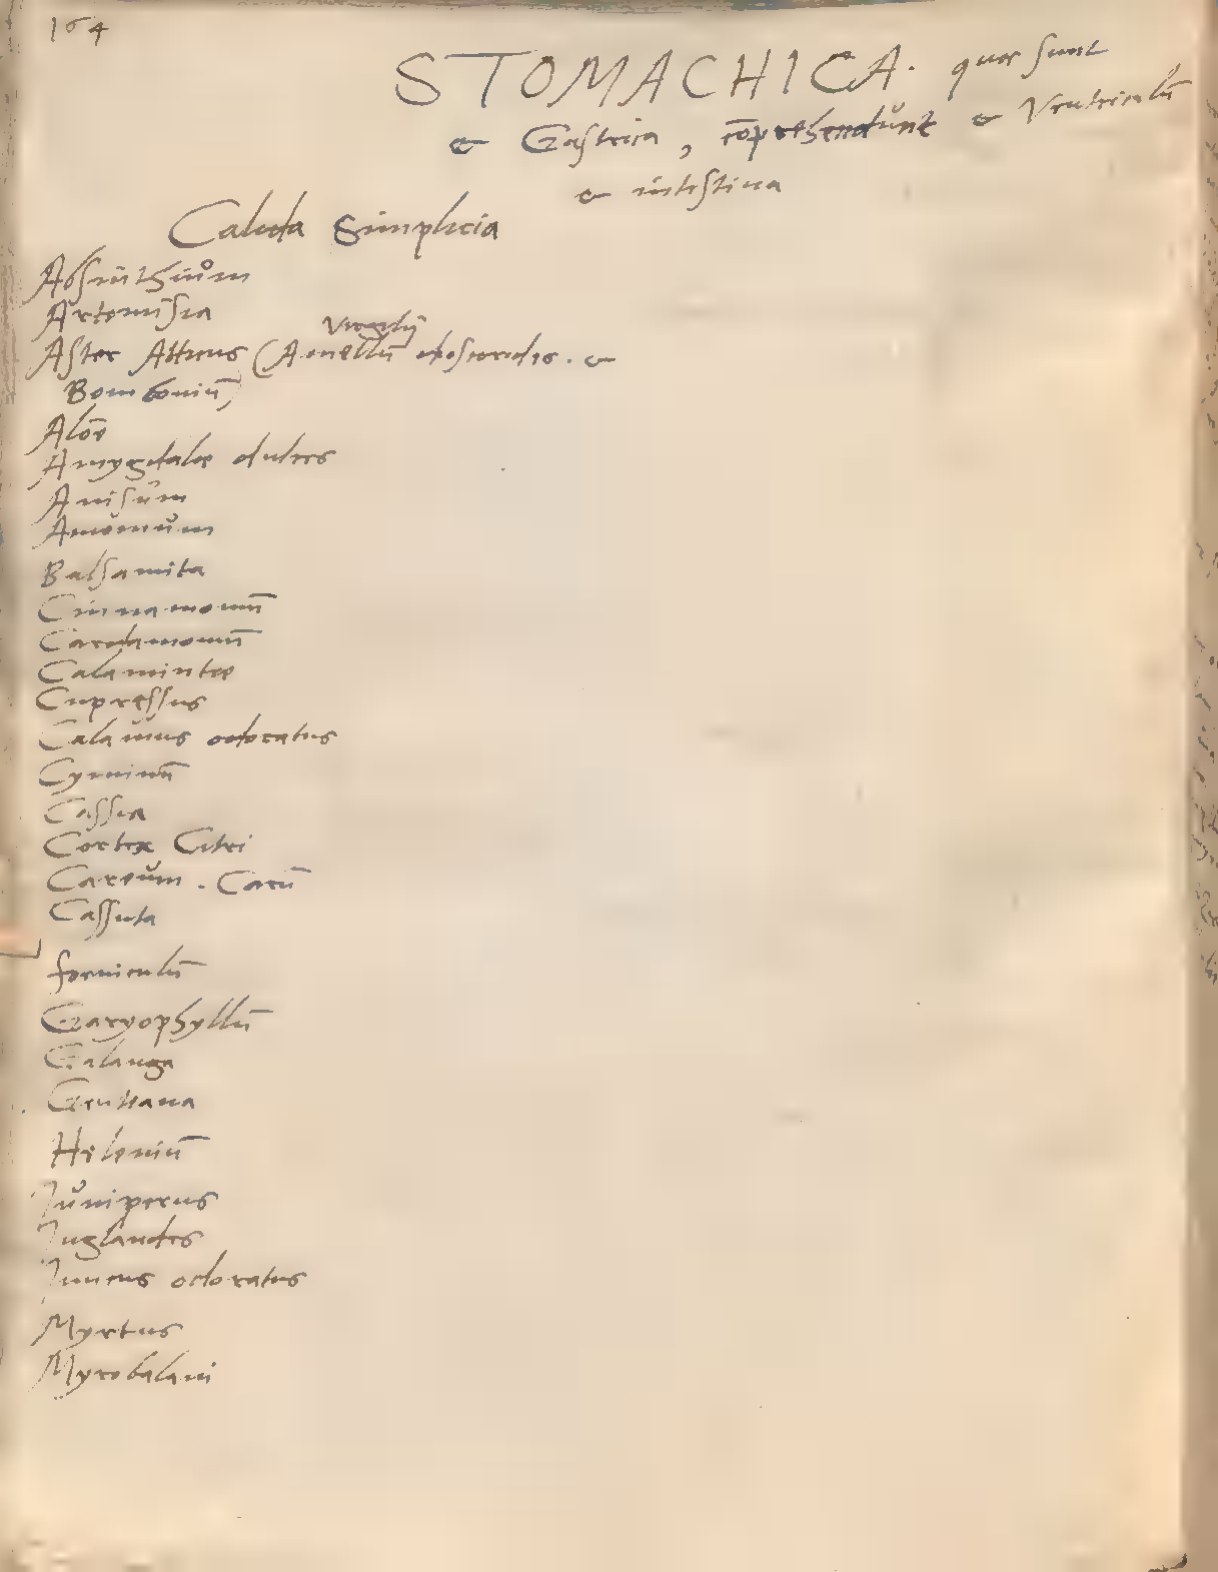 164
STOMACHICA. quae sunt
& Gastrica, cōprehendŭnt & Ventriculū
& intestina
Calida Simplicia
Absinthiŭm
Artemisia
Virgilij
Aster Atticus (Amellū dioscoridis. &
Bombonium)
Aloë
Amygdalae dulces
Anisŭm
Amomŭm
Balsamita
Cinnamomū
Cardamomū
Calaminthae
Cupressus
Calamus odoratus
Cyminū
Cassia
Cortex Citri
Careŭm. Carū
Cassuta
foeniculū
Garyophyllū
Galanga
Gentiana
Heleniū
Jŭniperus
Juglandes
Juncus odoratus
Myrtus
Myrobalani